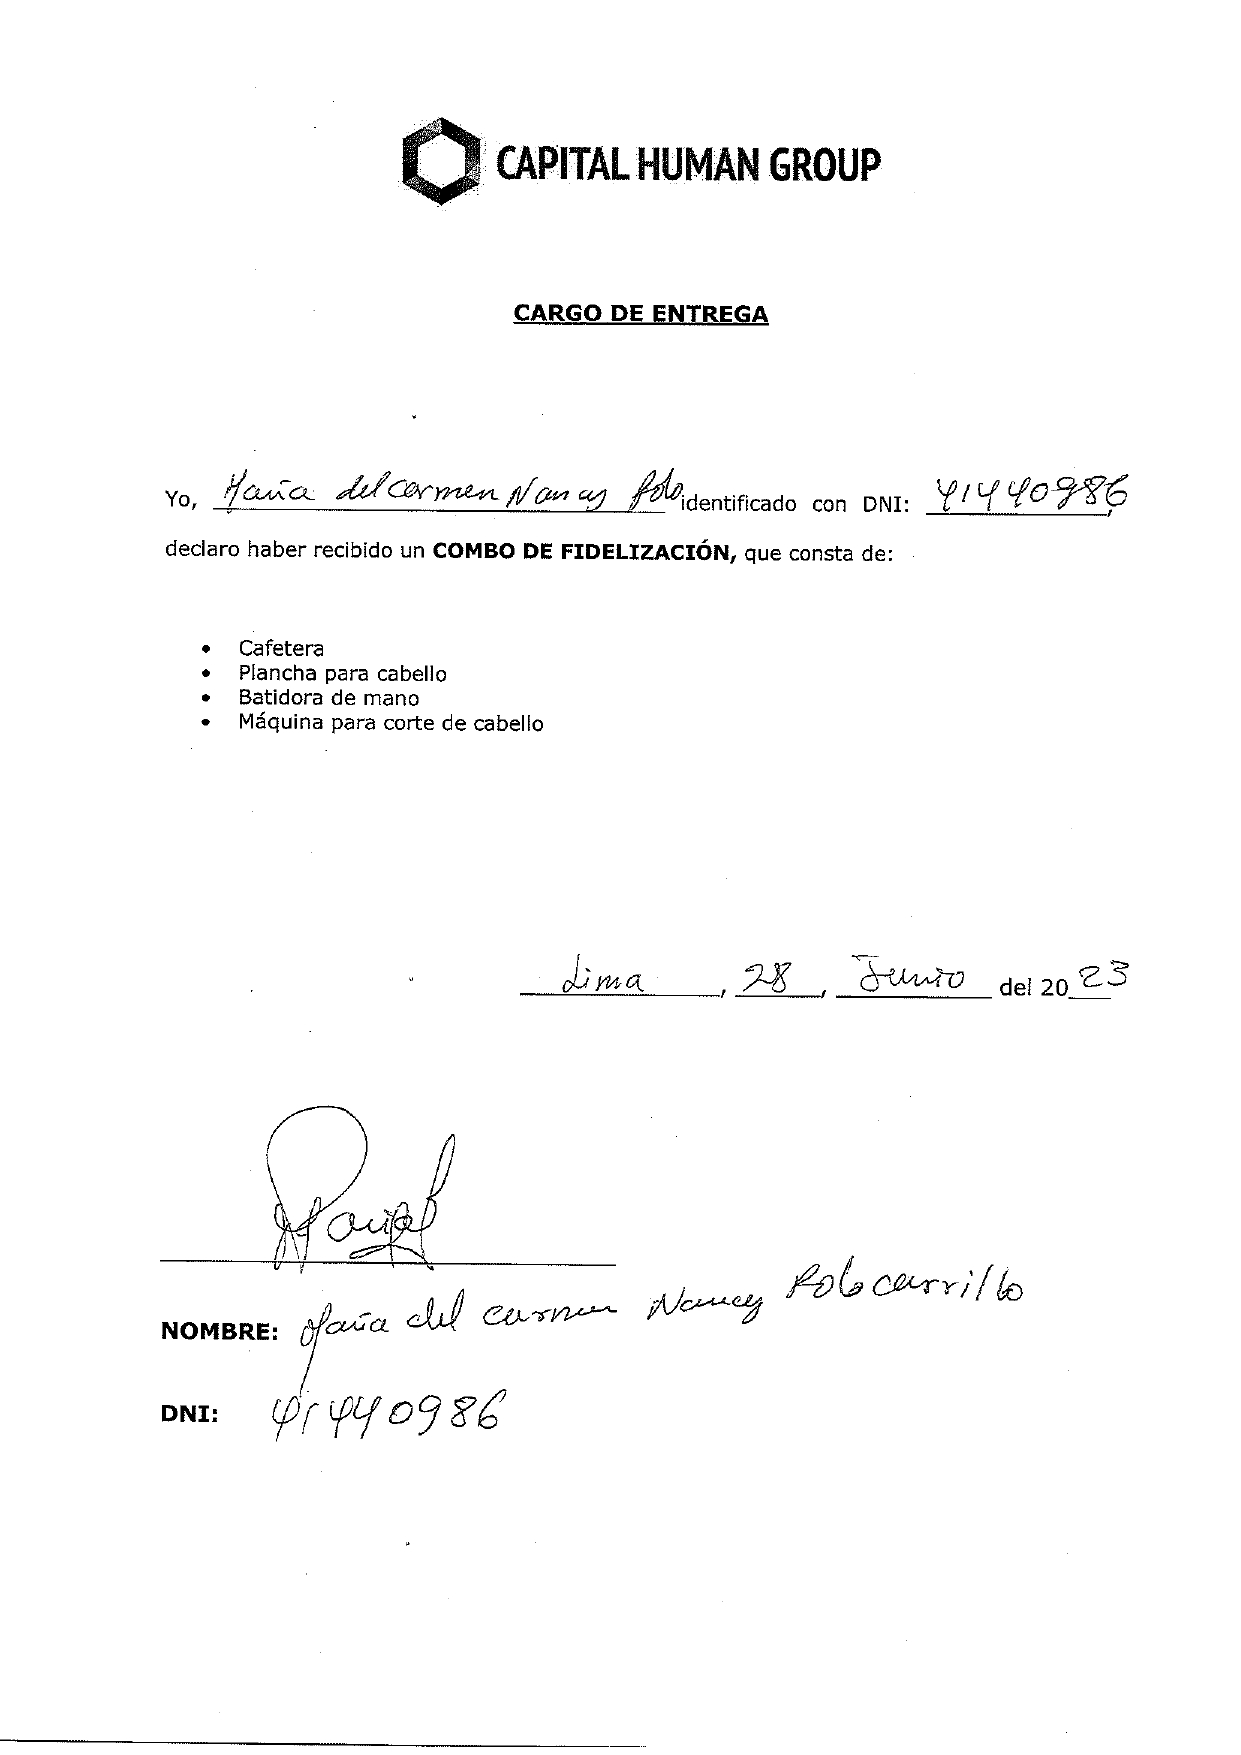 CAPITAL HUMAN GROUP
CARGO DE ENTREGA
Yo, María del Carmen Nancy Polo identificado con DNI: 41440986
declaro haber recibido un COMBO DE FIDELIZACIÓN, que consta de:
• Cafetera
• Plancha para cabello
• Batidora de mano
• Máquina para corte de cabello
Lima, 28, Junio del 2023
NOMBRE: María del carmen Nancy Polo carrillo
DNI: 41440986